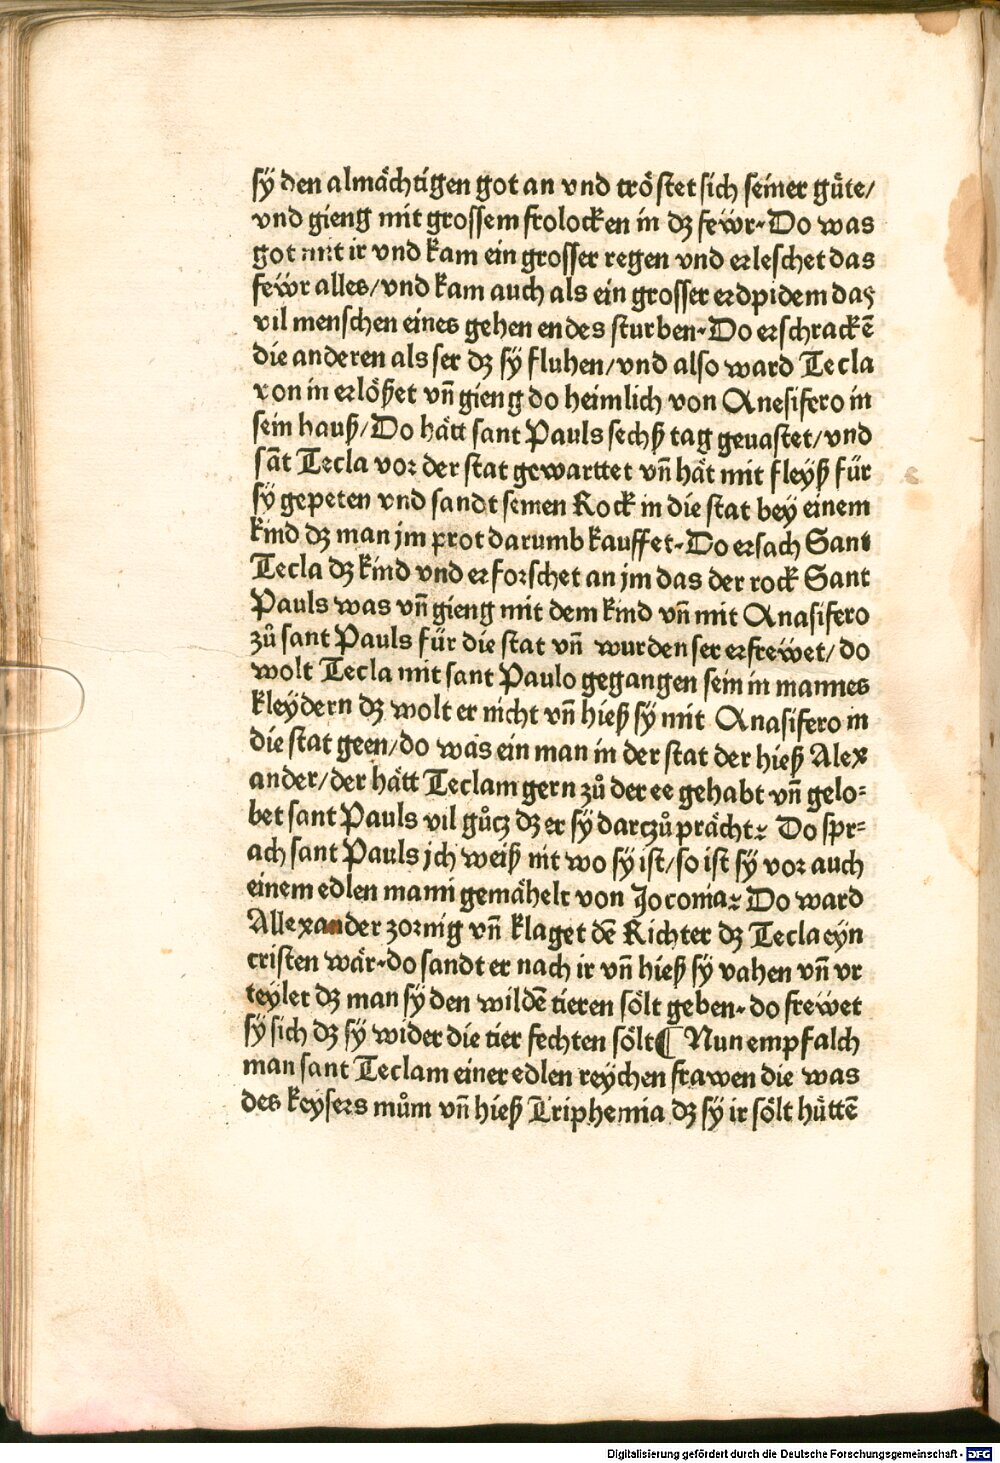 sÿ den almächtigen got an vnd tröstet sich seiner güte/
vnd gieng mit grossem frolocken in dʒ feẅr. Do was
got mit ir vnd kam ein grosser regen vnd erleschet das
feẅr alles/vnd kam auch als ein grosser erdpidem das
vil menschen eines gehen endes sturben. Do erschrackē
die anderen als ser dʒ sÿ fluhen/vnd also ward Tecla
von in erlößet vn̄ gieng do heimlich von Anesifero in
sein hauß/Do hätt sant Pauls sechß tag geuastet/vnd
sāt Tecla vor der stat gewarttet vn̄ hät mit fleyß für
sÿ gepeten vnd sandt seinen Rock in die stat bey einem
kind dʒ man jm prot darumb kauffet. Do ersach Sant
Tecla dʒ kind vnd erforschet an jm das der rock Sant
Pauls was vn̄ gieng mit dem kind vn̄ mit Anasifero
zů sant Pauls für die stat vn̄ wurden ser erfreẅet/do
wolt Tecla mit sant Paulo gegangen sein in mannes
kleÿdern dʒ wolt er nicht vn̄ hieß sÿ mit Anasifero in
die stat geen/do was ein man in der stat der hieß Alex
ander/der hätt Teclam gern zů der ee gehabt vn̄ gelo⸗
bet sant Pauls vil gůtʒ dʒ er sÿ darczů prächt. Do spr⸗
ach sant Pauls jch weiß nit wo sÿ ist/so ist sÿ vor auch
einem edlen mann gemähelt von Joconia. Do ward
Allexander zornig vn̄ klaget dē Richter dʒ Tecla eyn
cristen wär. do sandt er nach ir vn̄ hieß sÿ vahen vn̄ vr
teylet dʒ man sÿ den wildē tieren sölt geben. do freẅet
sÿ sich dʒ sÿ wider die tier fechten sölt¶ Nun empfalch
man sant Teclam einer edlen reÿchen frawen die was
des keysers mům vn̄ hieß Triphemia dʒ sÿ ir sölt hüttē
Digitalisierung gefördert durch die Deutsche Forschungsgemeinschaft - DFG